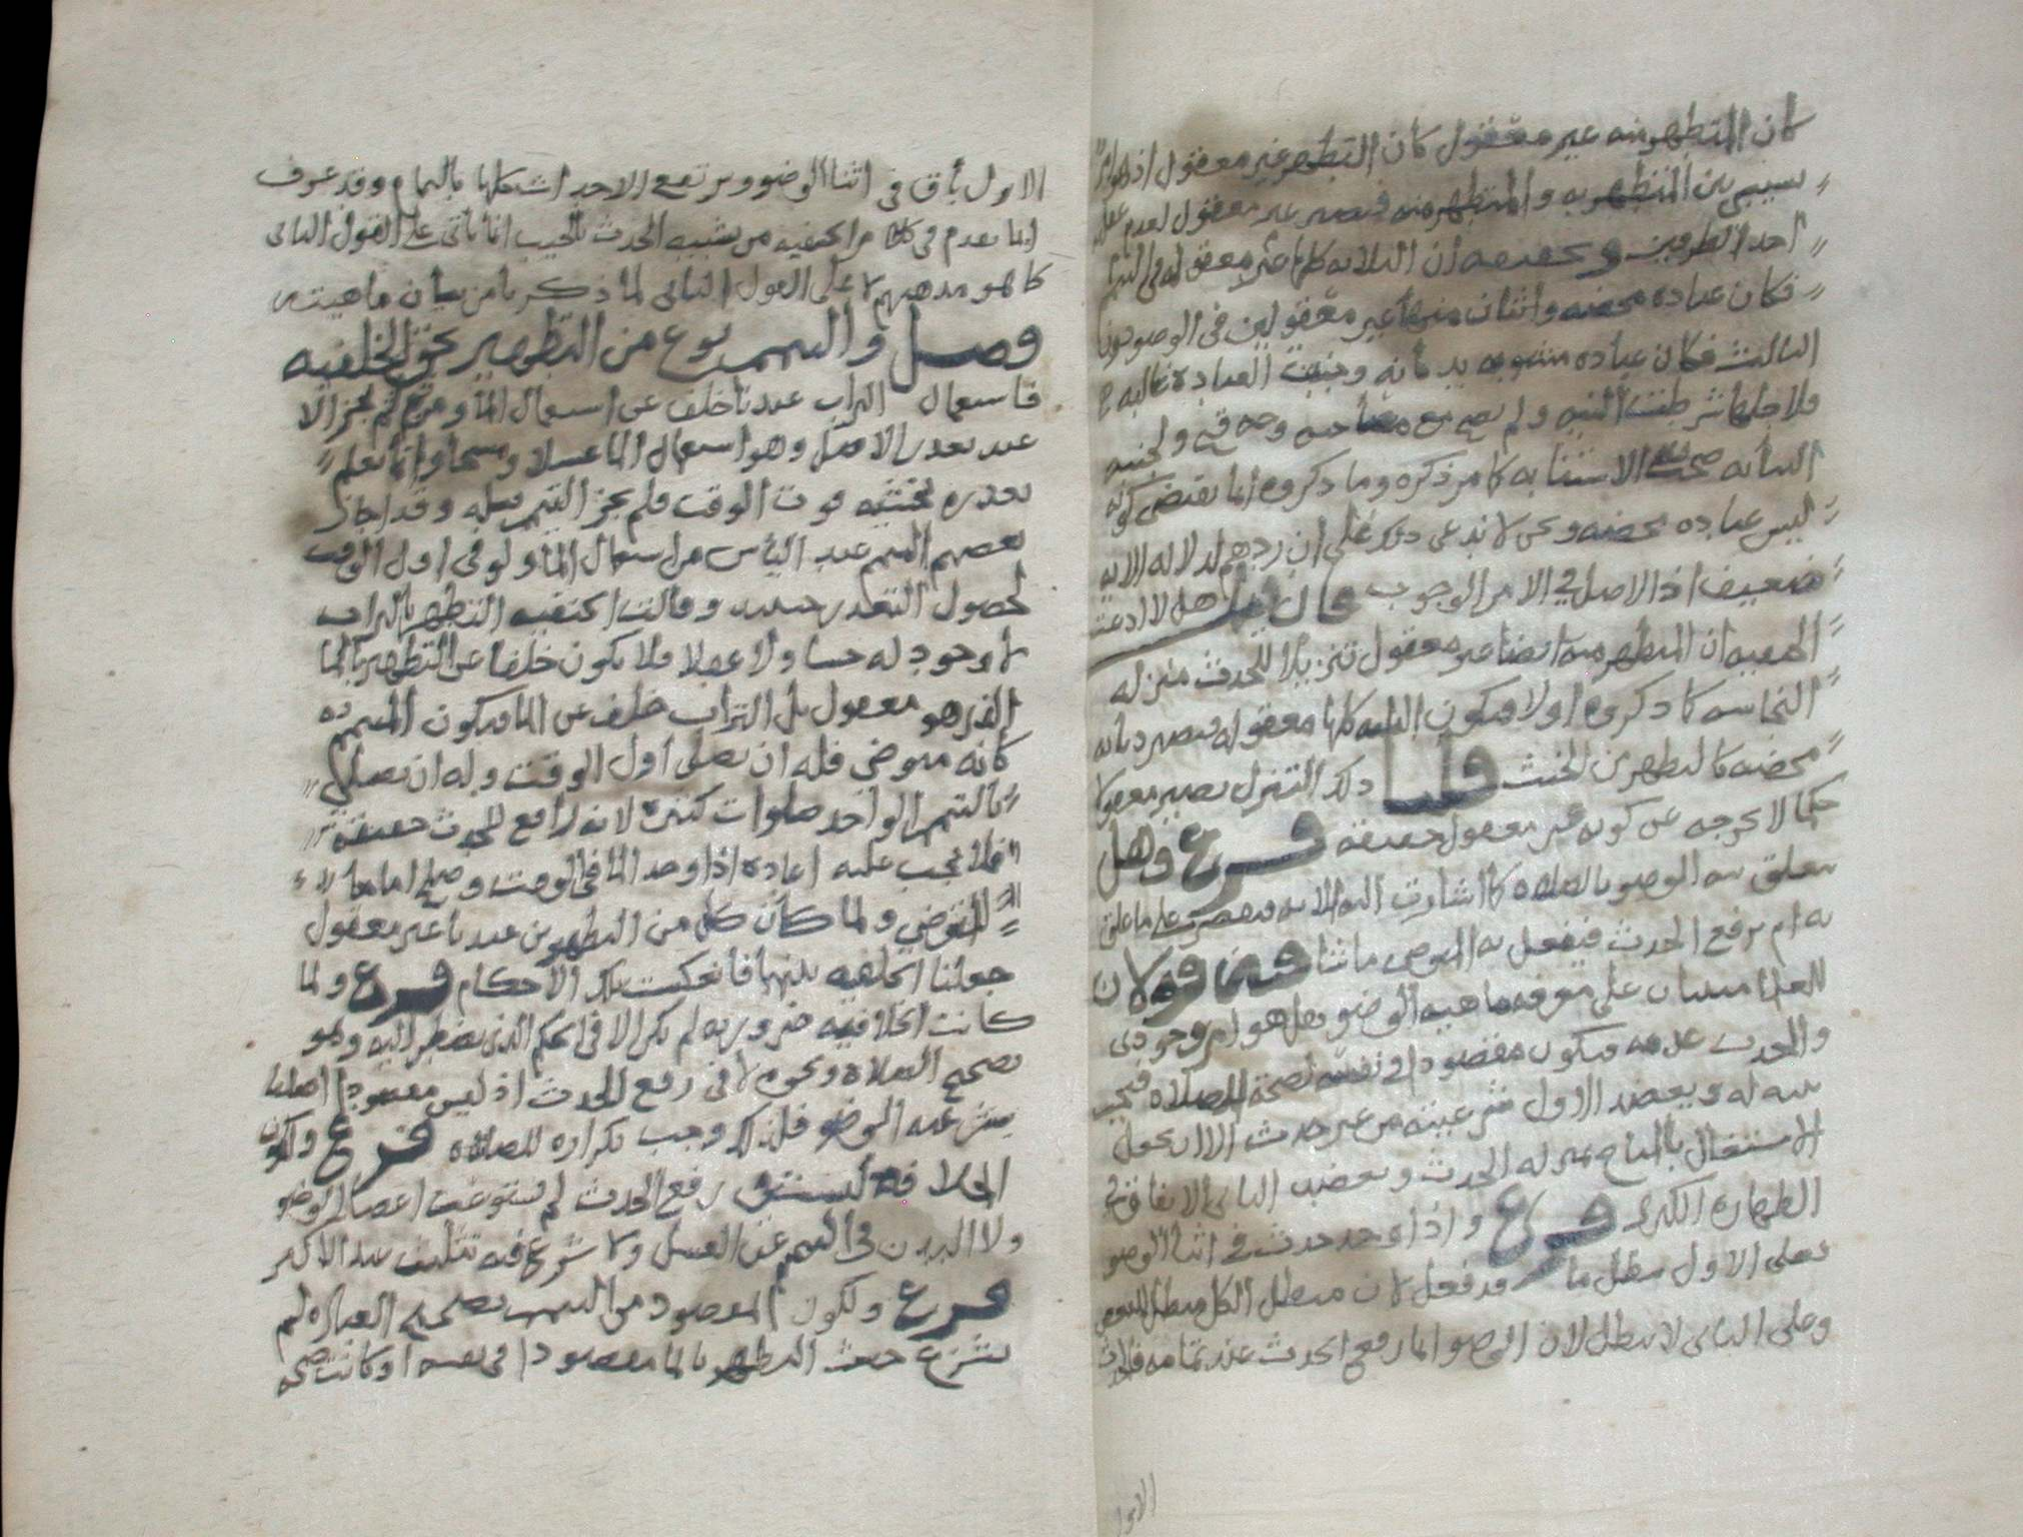 كان المتطهر منه غير معقول كان التطهر غير معقول اذ هو امر
نسبي بين المتطهر به والمتطهر منه فيصير غير معقول لعدم عقل
احد الطرفين وتحقيقه ان الثلاثه كلها غير معقوله في التيمم
فكان عباده محضه واثنان منها غير معقولين في الوضو دون
الثالث فكان عباده مشوبه بديانه وجنبت العباده غالبه
فلاجلها شرطت النيه ولم يصح مع مصاحبه ولجنبه
الديانه صحت الاستنابه كما مر ذكره وما ذكروه انما يقتضي كونه
ليس عباده محضه ونحن لا ندعي ذلك على ان ردهم لدلاله الايه
ضعيف اذ الاصل في الامر الوجوب فان قيل هلا ادعت
الحنفيه ان المتطهر منه ايضا غير معقول تنزيلا للحدث منزله
النجاسه كما ذكروه اولا فيكون الثلثه كلها معقوله فيصير ديانه
محضه كالتطهر من الخبث قلنا ذلك التنزل يصير معقولا
حكما لا يخرجه عن كونه غير معقول حقيقة فرع وهل
تعلق نيه الوضو بالصلاه كما اشارت اليه الايه فيقتصر على ما علق
به ام برفع الحدث فيفعل به المتوضي ما شا فيه قولان
للعلما مبنيان على معرفه ماهيه الوضو هل هو امر وجودي
والحدث عدمه فيكون مقصودا في نفسه لصحة الصلاه فيجب
نيته له ويعضد الاول شرعيته من غير حدث الا ان يجعل
الاشتغال بالمباح بمنزله الحدث ويعضد الثاني الاتفاق في
الطهاره الكبرى فرع واذا وجد حدث في اثنا الوضو
فعلى الاول يبطل ما قد فعل لان مبطل الكل مبطل البعض
وعلى الثاني لا يبطل لان الوضو انما رفع الحدث عند تمامه فالحدث
الاول
الاول باق في اثنا الوضو ويرتفع الاحداث كلها بالتمام وقد عرف
ان ما تقدم في كلام الحنفيه من تشبيه الحدث بالخبث انما ياتي على القول الثاني
كما هو مذهبهم لا على القول الثاني لما ذكرنا من بيان ماهيته
فصل والتيمم نوع من التطهير بحق الخلفيه
فاستعمال التراب عندنا خلف عن استعمال الما ومن ثم لم يجز الا
عند تعذر الاصل وهو استعمال الما غسلا ومسحا وانما يعلم
تعذره بخشية فوت الوقت فلم يجز التيمم قبله وقد اجاز
بعضهم التيمم عند الياس من استعمال الما ولو في اول الوقت
لحصول التعذر حينئذ وقالت الحنفيه التطهر بالتراب
لا وجود له حسا ولا عقلا فلا يكون خلفا عن التطهير بالما
الذي هو معقول بل التراب خلف عن الما فيكون المتيمم به
كانه متوضي فله ان يصلي اول الوقت وله ان يصلي
بالتيمم الواحد صلوات كثيره لانه رافع للحدث حقيقة
فلا يجب عليه اعاده اذا وجد الما في الوقت وصلح اماما
للمتوضي ولما كان كل من التطهرين عندنا غير معقول
جعلنا الخلفيه بينهما فانعكست تلك الاحكام فرع ولما
كانت الخلافيه ضروريه لم تكن الا في الحكم الذي يضطر اليه وهو
تصحيح الصلاه ونحوه لا في رفع الحدث اذ ليس مقصودا اصليا
بشرعيه الوضو فلذلك وجب تكراره للصلاه فرع ولكون
الخلافيه ليست في رفع الحدث لم يستوعب اعضا الوضو
ولا البدن في التيمم عن الغسل ولا شرع فيه تثليث عند الاكثر
فرع ولكون المقصود من التيمم تصحيح العباره لم
يشرع حيث التطهر بالما مقصودا في نفسه او كانت صحه